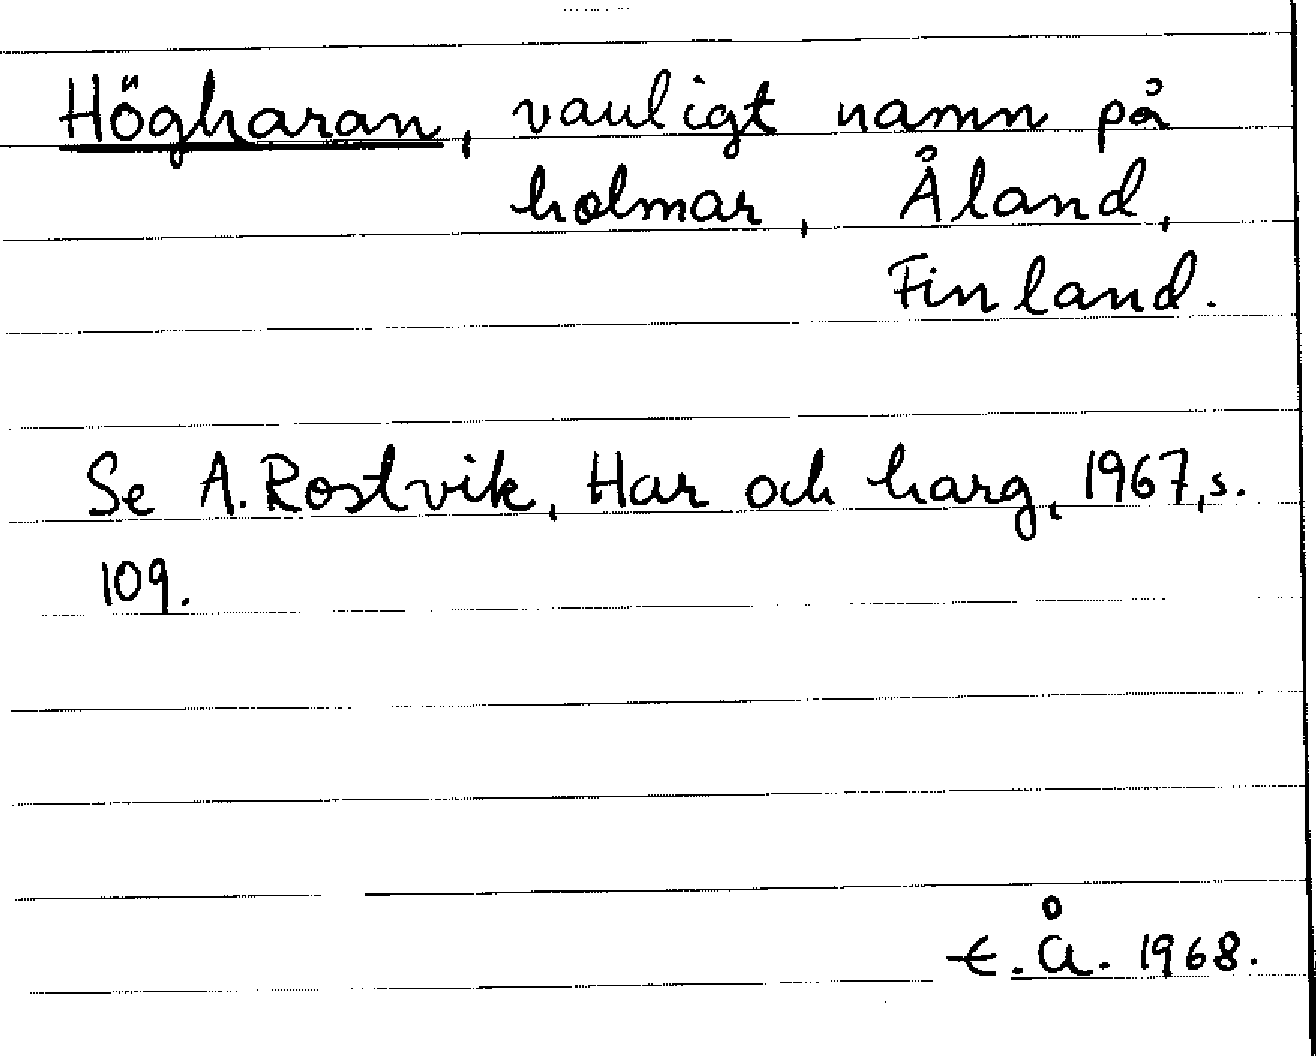 Högharan, vanligt namn på
holmar, Åland,
Finland.
Se A. Rostvik, Har och harg, 1967, s.
109.
E. Å. 1968.